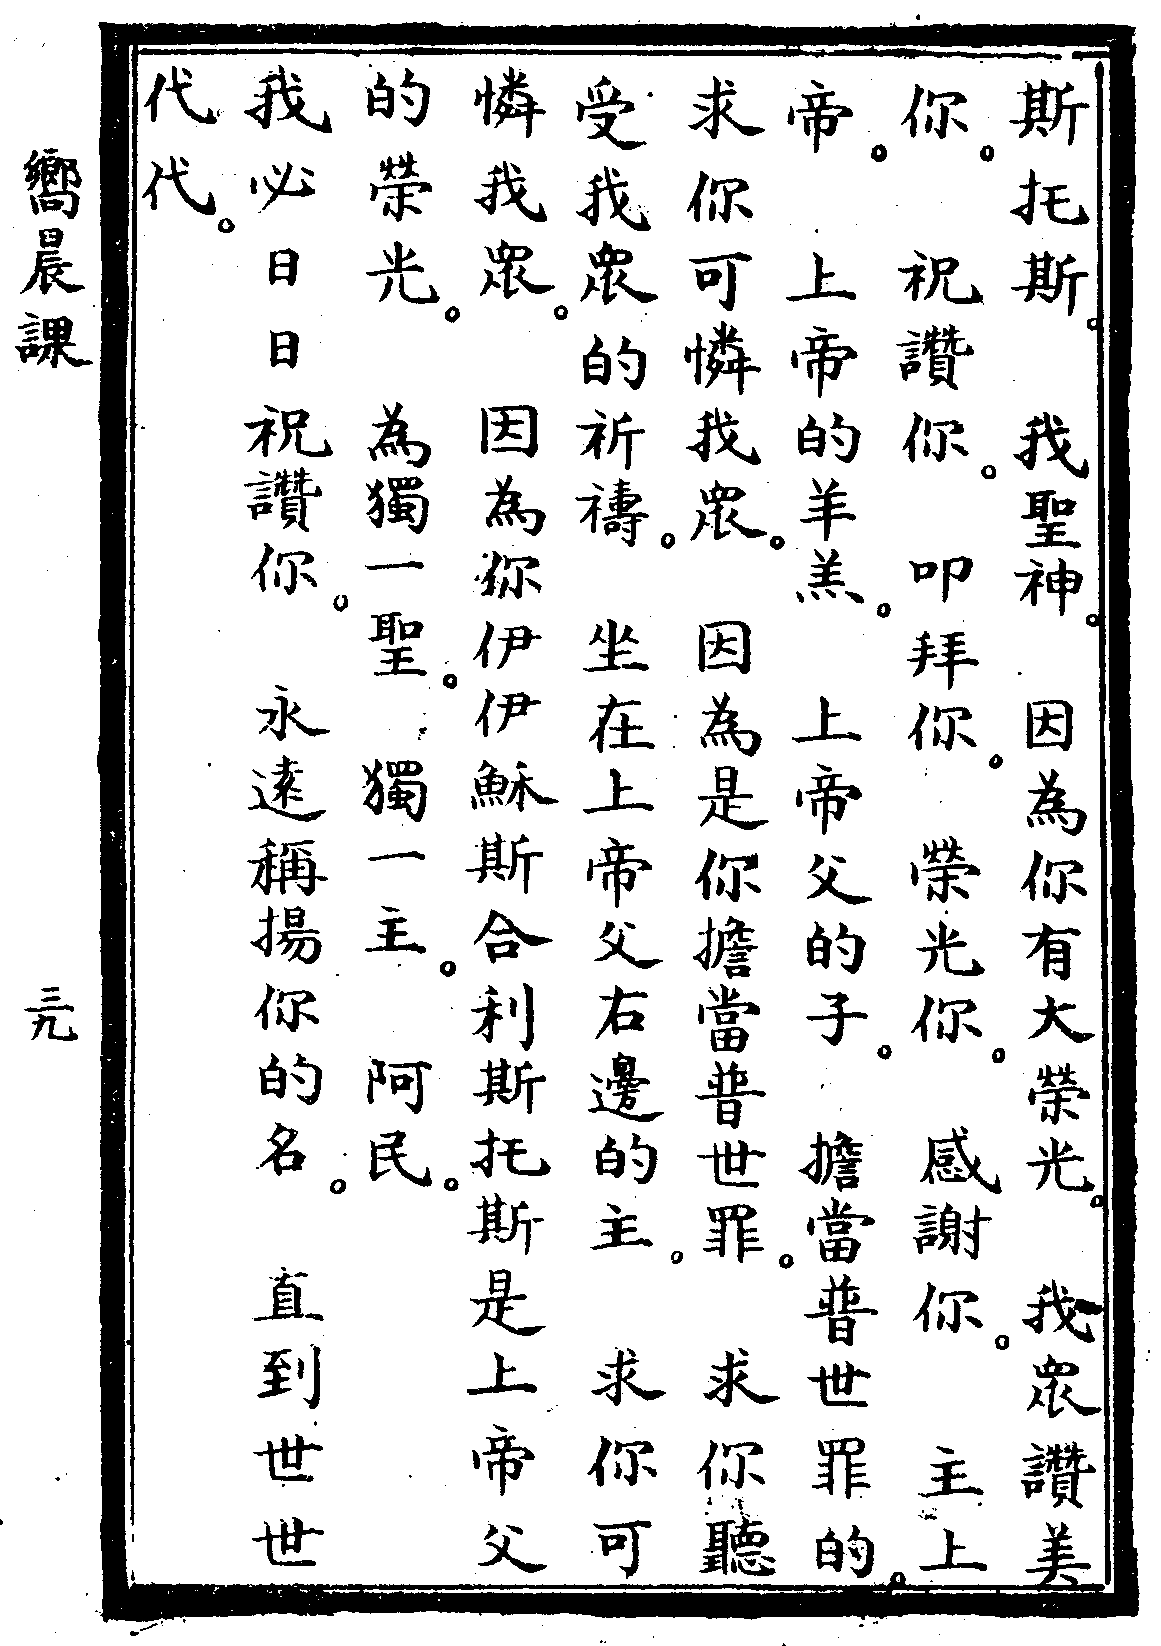 斯托斯。　我聖神。　因為你有大榮光。　我衆讚美
你。　祝讚你。　叩拜你。　榮光你。　感謝你。　主上
帝。　上帝的羊羔。　上帝父的子。　擔當普世罪的。
求你可憐我衆。　因為是你擔當普世罪。　求你聽
受我衆的祈禱。　坐在上帝父右邊的主。　求你可
憐我衆。　因為你伊伊穌斯合利斯托斯是上帝父
的榮光。　為獨一聖。　獨一主。　阿民。
我必日日祝讚你。　永遠稱揚你的名。　直到世世
代代。
嚮晨課
三九